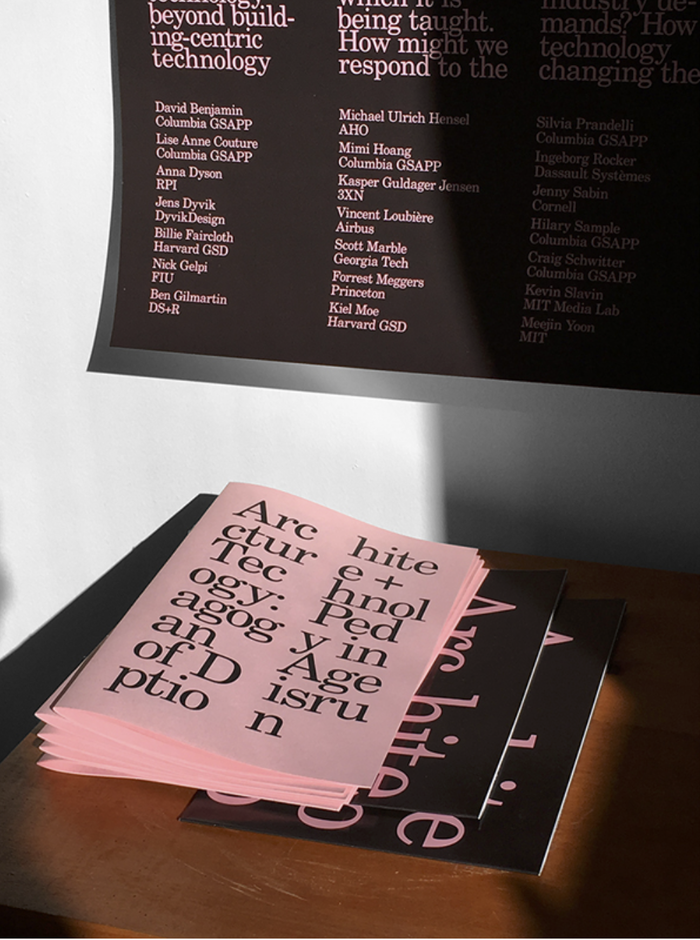 beyond build-
ing-centric
technology
David Benjamin
Columbia GSAPP
Lise Anne Couture
Columbia GSAPP
Anna Dyson
RPI
Jens Dyvik
DyvikDesign
Billie Faircloth
Harvard GSD
Nick Gelpi
FIU
Ben Gilmartin
DS+R
which it is
being taught.
How might we
respond to the
Michael Ulrich Hensel
AHO
Mimi Hoang
Columbia GSAPP
Kasper Guldager Jensen
3XN
Vincent Loubière
Airbus
Scott Marble
Georgia Tech
Forrest Meggers
Princeton
Kiel Moe
Harvard GSD
industry de-
mands? How
technology
changing the
Silvia Prandelli
Columbia GSAPP
Ingeborg Rocker
Dassault Systèmes
Jenny Sabin
Cornell
Hilary Sample
Columbia GSAPP
Craig Schwitter
Columbia GSAPP
Kevin Slavin
MIT Media Lab
Meejin Yoon
MIT
Arc hite
ctur e +
Tec hnol
ogy: Ped
agog y in
an Age
of D isru
ptio n
Archite